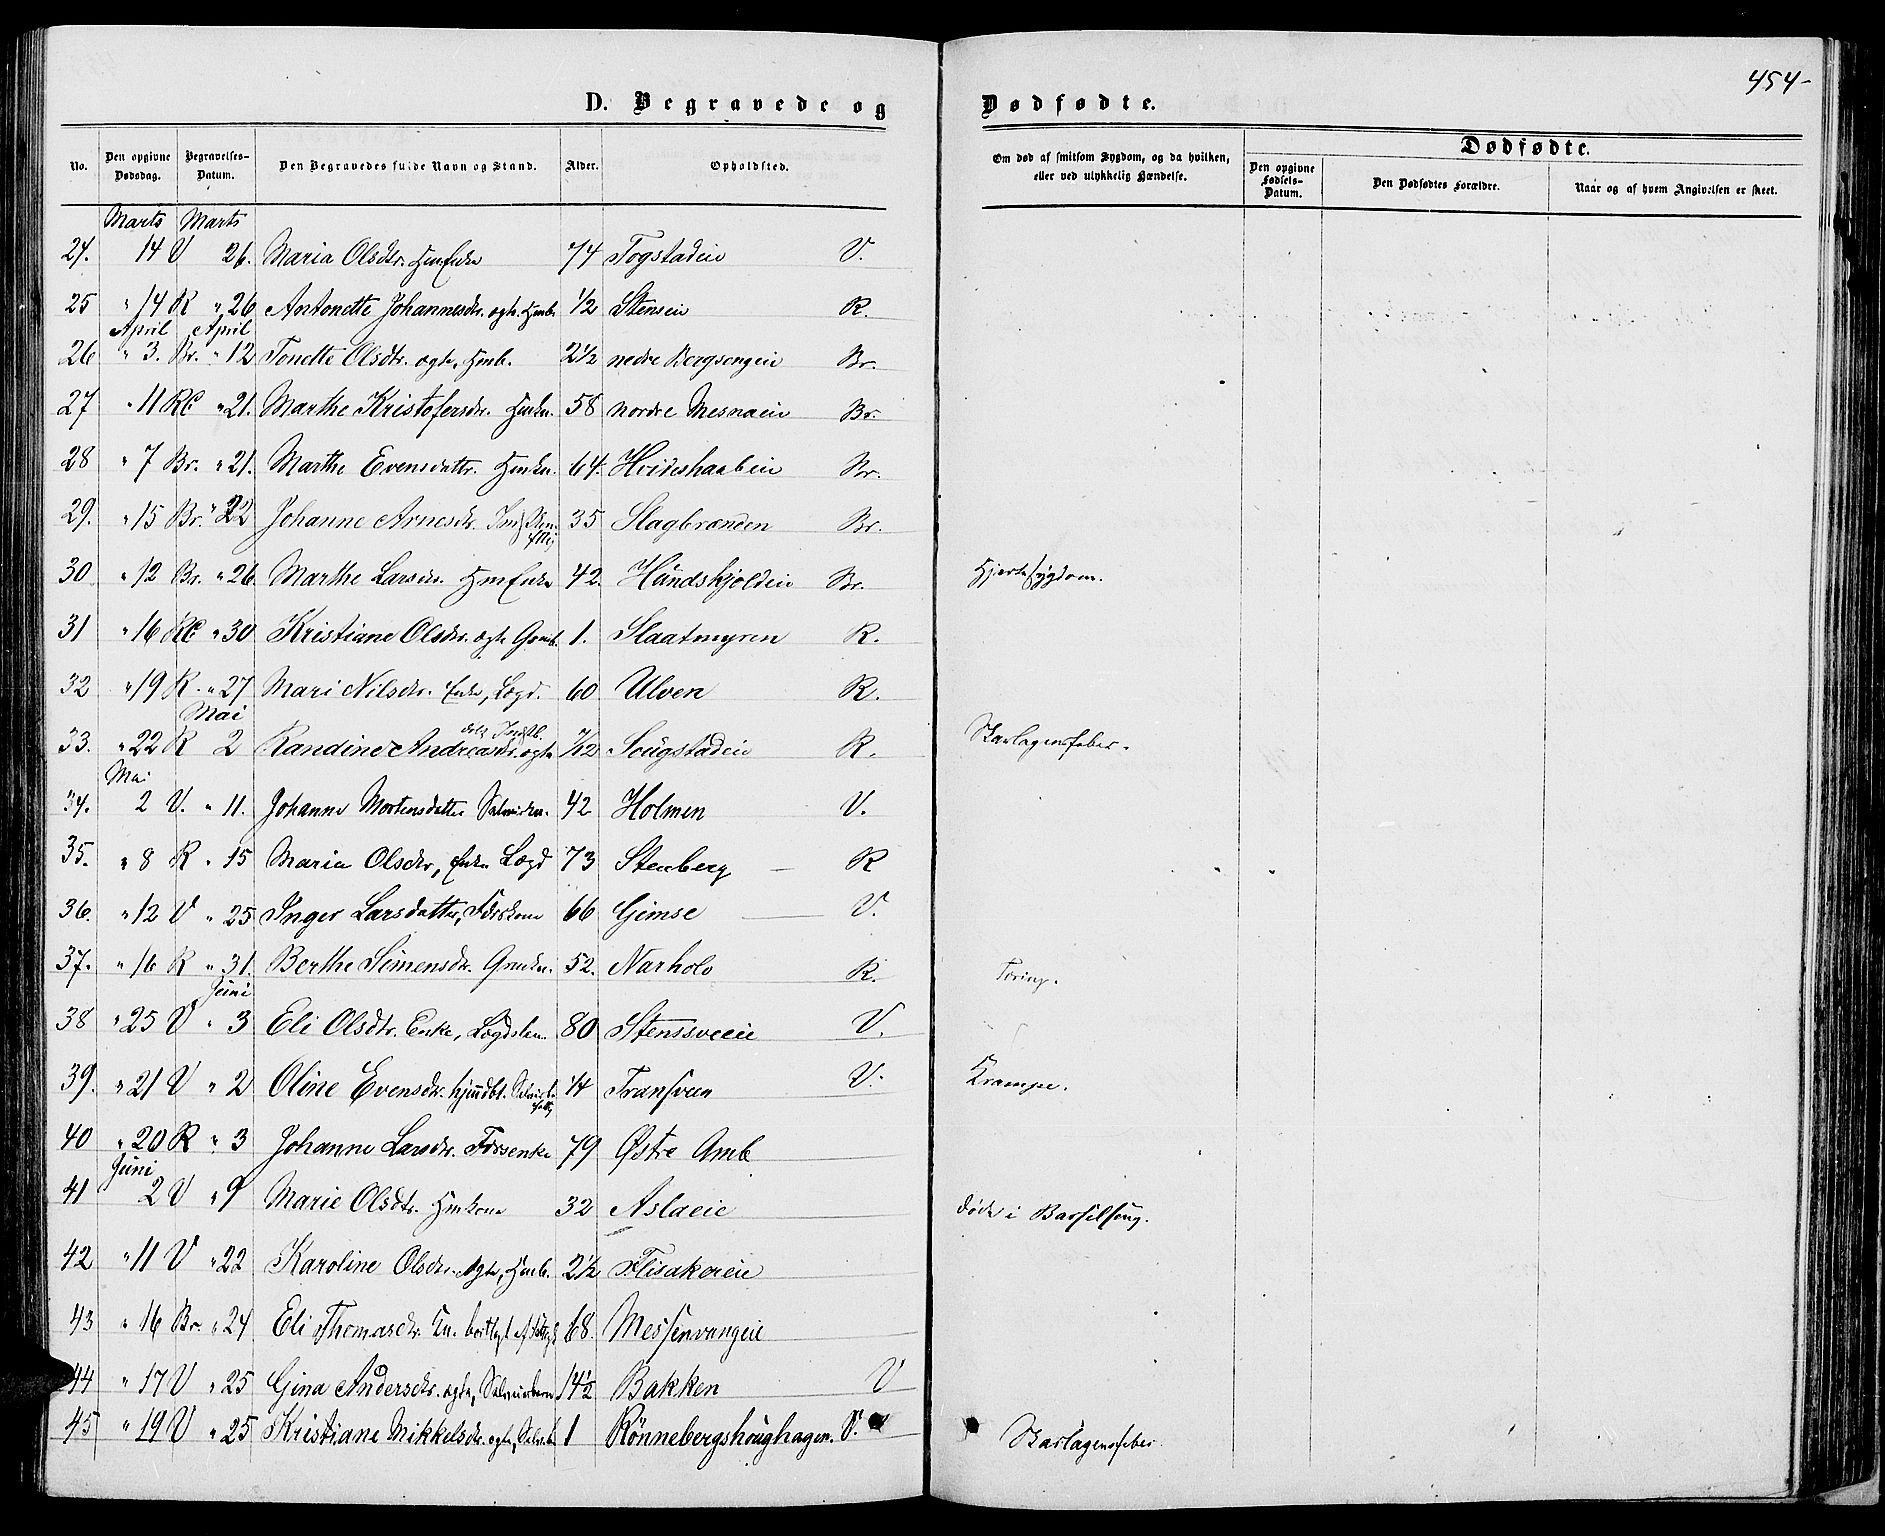 454-
D. Begravede og Dødfødte.
No. Den opgivne Dødsdag. Begravelses-Datum. Den Begravedes fulde Navn og Stand. Alder. Opholdsted. Om død af smitsom Sygdom, og da hvilken, eller ved ulykkelig Hændelse. Dødfødte. Den opgivne Fødsels-Datum. Den Dødfødtes Forældre. Naar og af hvem Angivelsen er skeet.
Marts Marts
24. 14 V 26. Maria Olsdtr. HmEnke 74 Togstadeie V.
25 " 14 R " 26 Antonette Johannesdr. ægte Hmb. 1/2 Stenseie R.
April April
26 " 3. Br. " 12 Tonette Olsdtr. ægte, Hmb. 2 1/2 nedre Bergsengeie Br.
27 " 11 R " 21. Marthe Kristofersdr. Hmkn. 58 nordre Mesnaeie Br.
28 " 7 Br. " 21. Marthe Evensdattr. Hmkn. 64. Hvideshaabeie Br.
29. " 15 Br. " 22 Johanne Arnesdr. 35 Slagbrenden Br.
30 " 12 Br. " 26 Marthe Larsdr. HmEnke 42. Håndskjoldeie Br. Hjertesygdom.
31 " 16 R " 30 Kristiane Olsdr. ægte Gmb. 1. Slaatmyren R.
32 " 19 R. " 27 Mari Nilsdr. Enke, Lægd. 60 Ulven R.
Mai
33. " 22 R 2 Randine Andreasdr. ægte 7/12 Sougstadeie R. Skarlagensfeber.
Mai
34. 2 V. " 11. Johanne Mortensdatter 42 Holmen V.
35. " 8 R " 15 Maria Olsdr, Enke Lægd 73 Stenberg R
36. " 12 V " 25 Inger Larsdatter, Førskone 66 Gimse V.
37. " 16 R " 31. Berthe Simensdr. Gmkn. 52. Narholo R. Tæring.
Juni
38 " 25 V " 3 Eli Olsdtr. Enke, Lægdslem. 80 Stenssveeie V.
39. " 21 V " 2 Oline Evensdr. 14 Transveen V. Krampe.
40 " 20 R " 3 Johanne Larsdr. Førsenke 79 Østre Amb
Juni
41 2 V " 9 Marie Olsdtr. Hmkone 32 Aslaeie døde i Barselseng.
42 " 11 V " 22 Karoline Olsdr. ægte, Hmb. 2 1/2 Flisakereie
43 " 16 Br. " 24 Eli Thomasdr. 68. Messenvangeie
44 " 17 V " 25 Gina Andersdr. ægte, Selveierbarn 14 1/2 Bakken V
45 " 19 V " 25 Kristiane Mikkelsdr. ægte, Selv.b. 1 Rönnebergshoughagen. V. Skarlagensfeber.